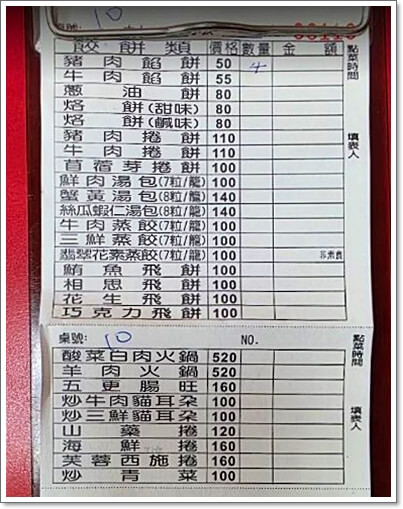 10
00110
餃餅類 價格 數量 金額 點菜時間
豬肉餡餅 50 4
牛肉餡餅 55
蔥油餅 80
烙餅(甜味) 80
烙餅(鹹味) 80
豬肉捲餅 110 填表人
牛肉捲餅 110
苜蓿芽捲餅 100
鮮肉湯包(7粒/籠) 100
蟹黃湯包(8粒/籠) 140
絲瓜蝦仁湯包(8粒/籠) 140
牛肉蒸餃(7粒/籠) 100
三鮮蒸餃(7粒/籠) 100
翡翠花素蒸餃(7粒/籠) 100
鮪魚飛餅 100
相思飛餅 100
花生飛餅 100
巧克力飛餅 100
桌號: 10 NO. 點菜時間
酸菜白肉火鍋 520
羊肉火鍋 520
五更腸旺 160
炒牛肉貓耳朶 100 填表人
炒三鮮貓耳朶 100
山藥捲 120
海鮮捲 160
芙蓉西施捲 160
炒青菜 100